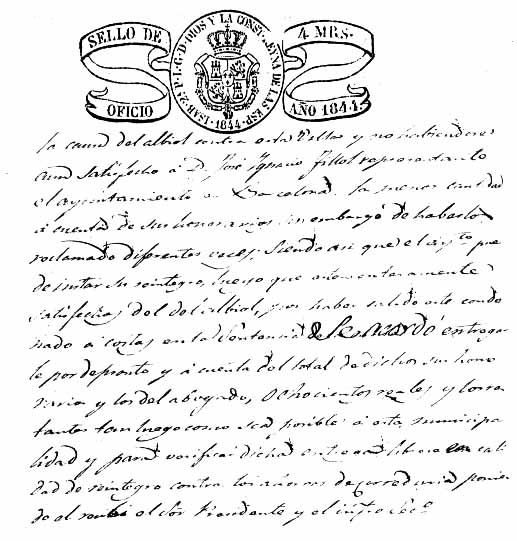 SELLO DE OFICIO
ISAB. 2ª P. L. G. D. DIOS Y LA CONST. REYNA DE LAS ESP.
1844
4 MRS. AÑO 1844
la causa del albiol contra esta Villa y no habiendose
aun satisfecho á D. José Ignacio Fillol representante
el ayuntamiento en Barcelona la menor cantidad
á cuenta de sus honorarios sin embargo de haberlo
reclamado diferentes veces; siendo asi que el ayto. pue
de instar su reintegro, luego que esten enteramente
satisfechas del de Albiol, por haber salido este conde
nado á costas en la Sentencia Se acordó entregar
le por de pronto y á cuenta del total de dichos sus hono
rarios y los del abogado, ochocientos reales y los res
tantes tan luego como sea posible á esta municipa
lidad y para verificar dicha entrega en cali
dad de reintegro contra los de poni
do el el Sor. Presidente y el infro. Secº.